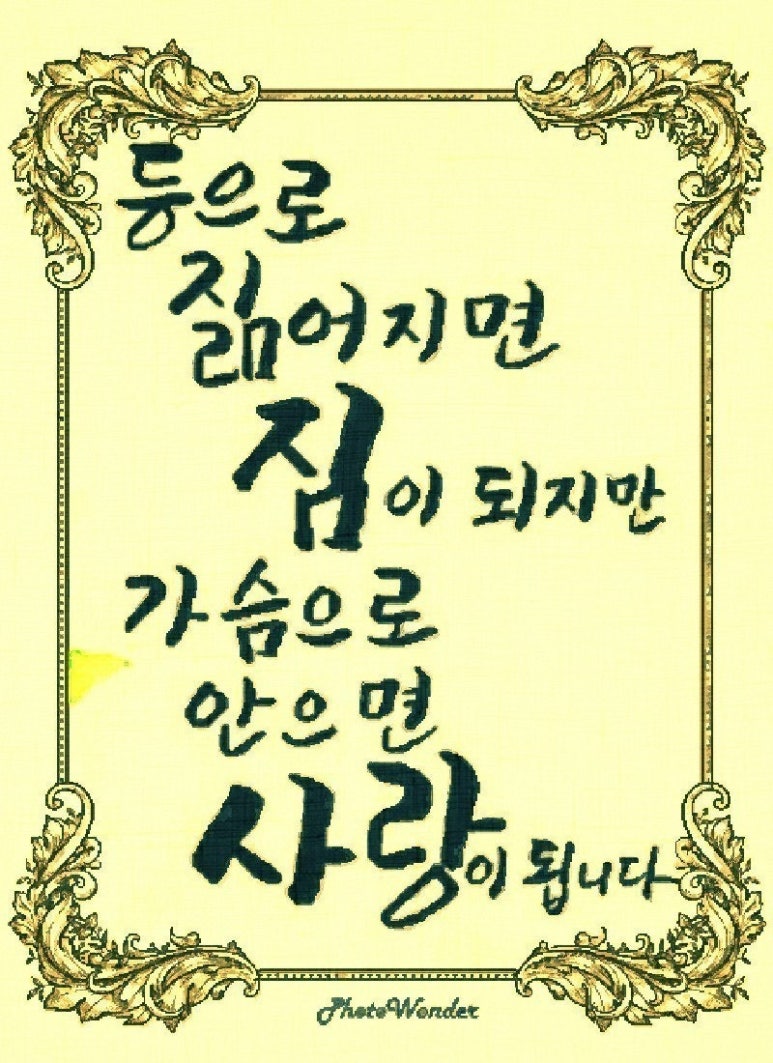 등으로
짊어지면
짐이 되지만
가슴으로
안으면
사랑이 됩니다
PhotoWonder